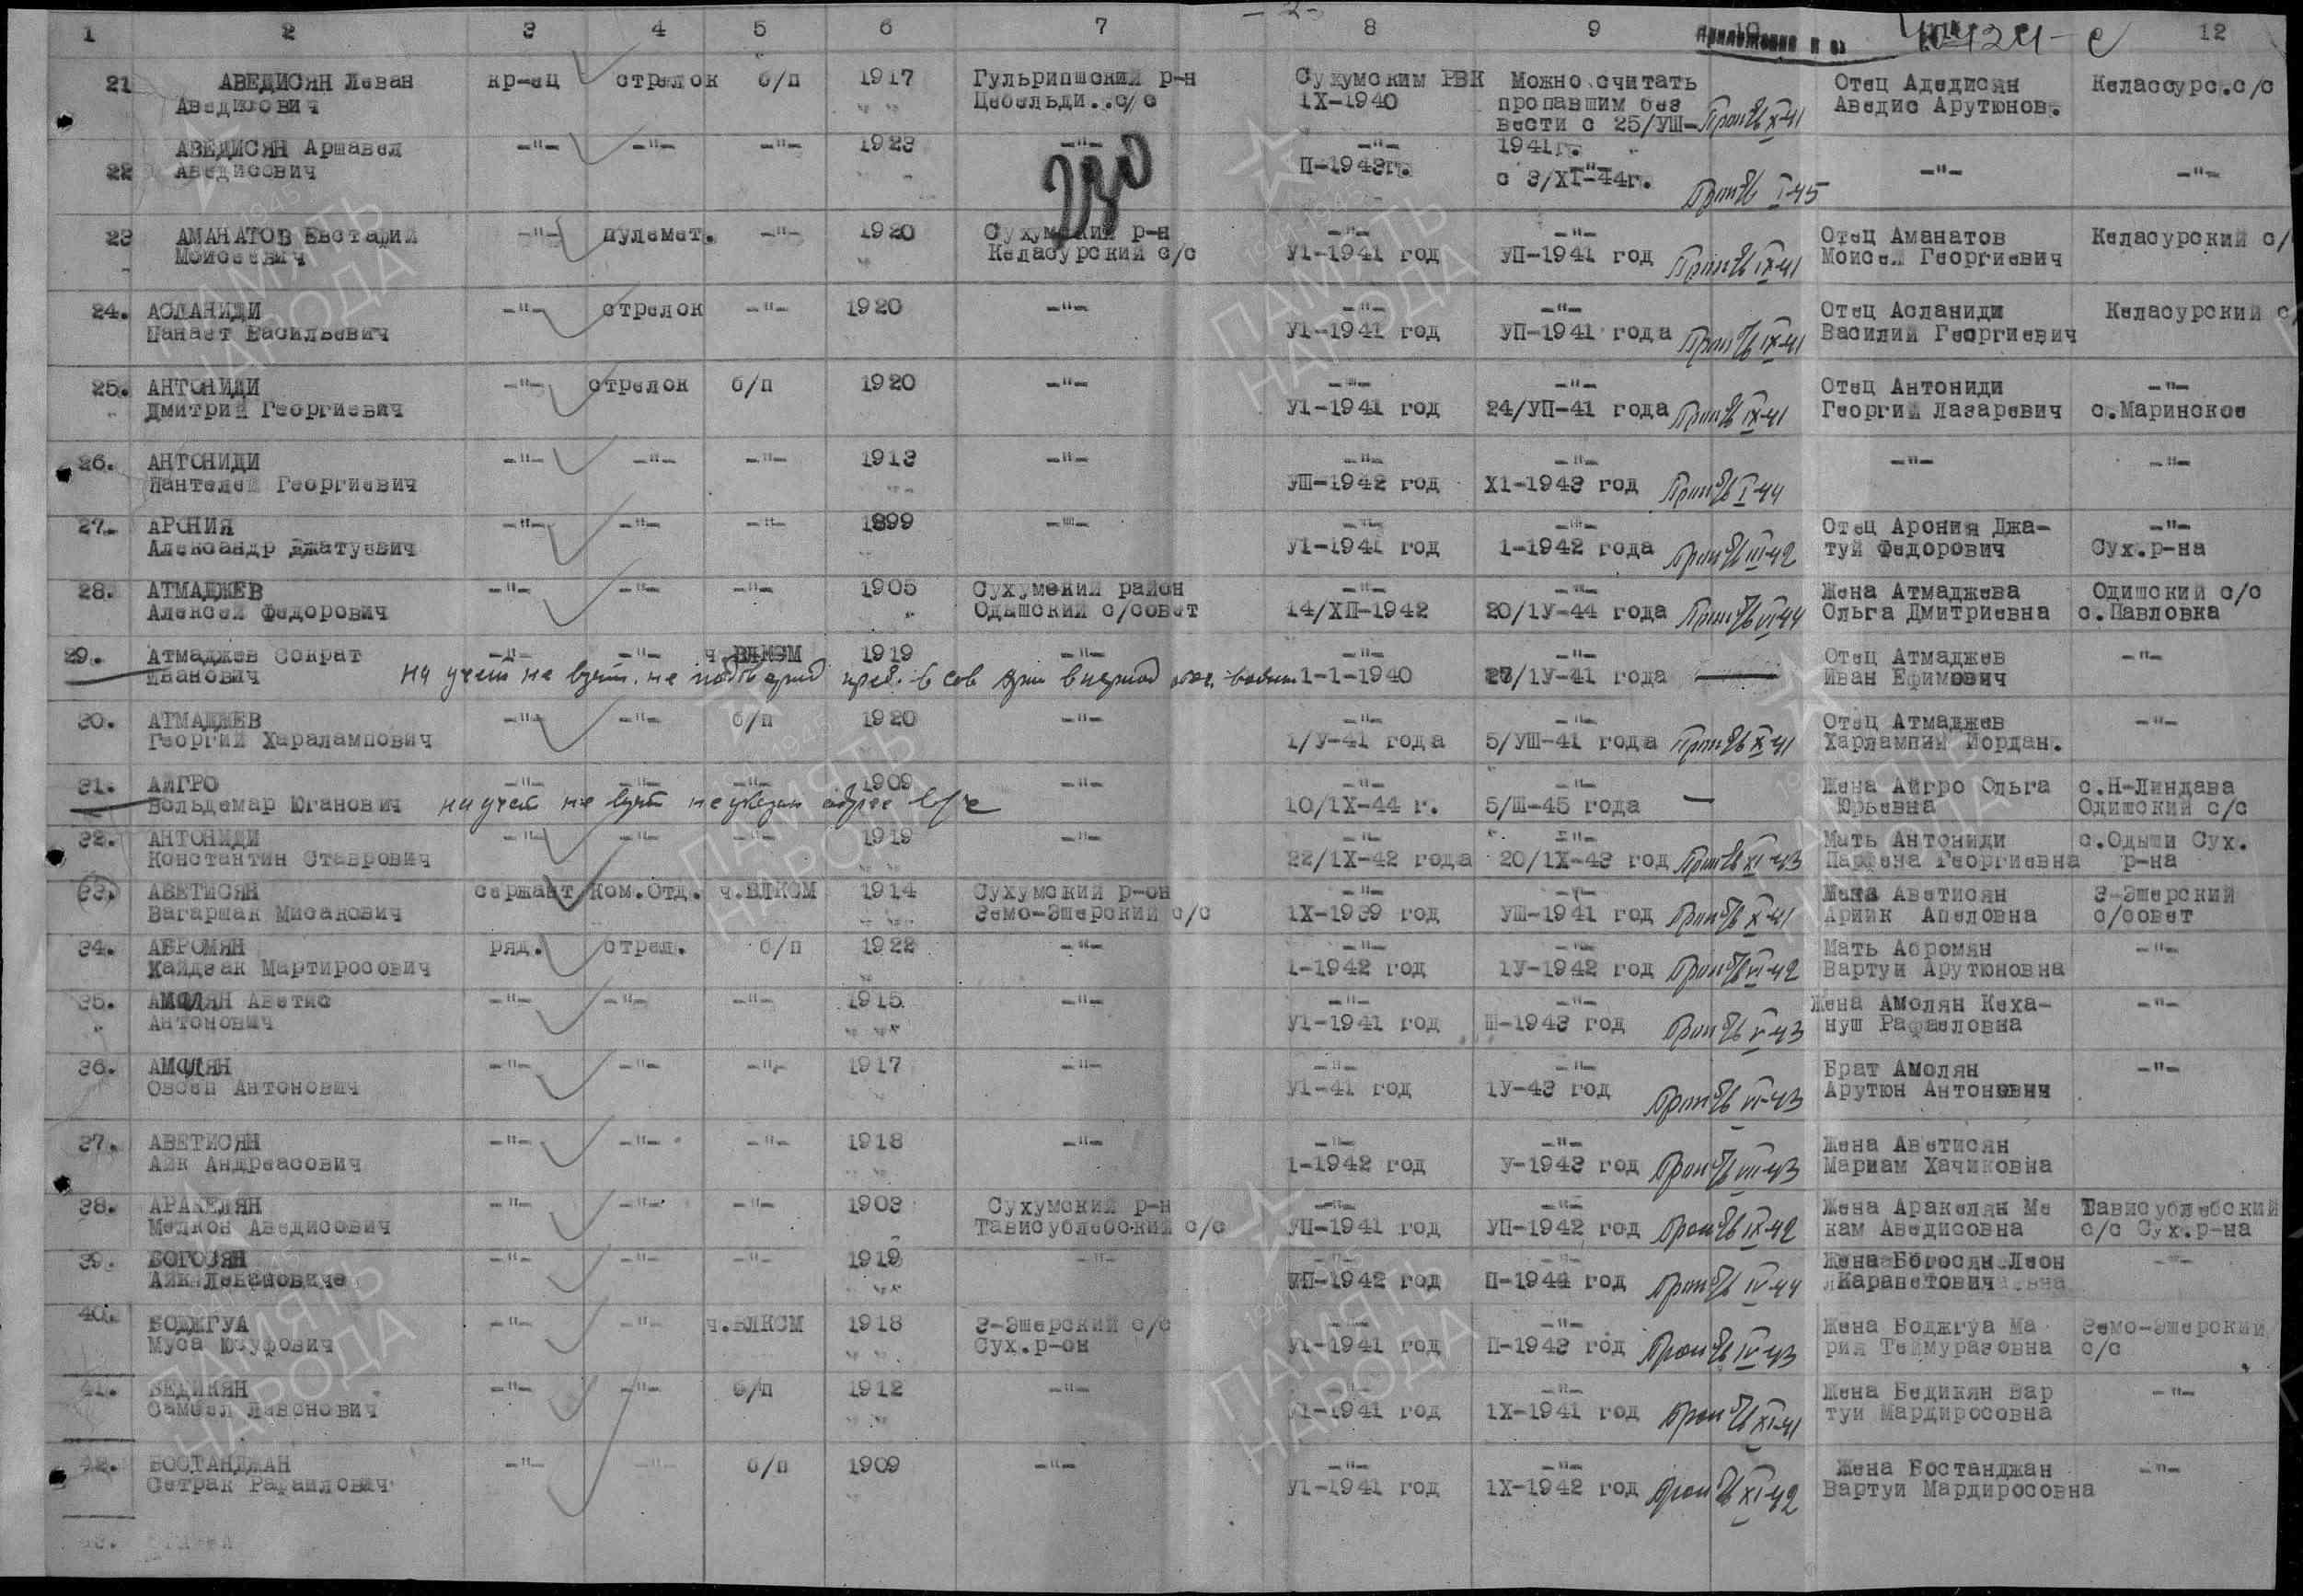 - 2 -
1 2 3 4 5 6 7 8 9 10 11 12
Приложение к вх 4242 - с
21 АВЕДИСЯН Леван кр-ец стрелок б/п 1917 Гульрипшский р-н Сухумским РВК Можно считать Отец Адедисян Келассурс.с/с
Аведисович Цебельди..с/с 1Х-1940 пропавшим без Аведис Арутюнов.
вести с 25/УШ- Проп б/в X-41
АВЕДИСЯН Аршавел -"- -"- -"- 1923 -"- -"- 1941г.
22 Аведисович П-1943г. с 3/Х1-44г. Проп б/в I-45 -"- -"-
230
23 АМАНАТОВ Евстафий -"- пулемет. -"- 1920 Сухумский р-н -"- -"- Отец Аманатов Келасурский с/
Моисеевич Келасурский с/с У1-1941 год УП-1941 год Проп б/в IX-41 Моисей Георгиевич
24. АСЛАНИДИ -"- стрелок -"- 1920 -"- -"- -"- Отец Асланиди Келасурский с
Панает Васильевич У1-1941 год УП-1941 года Проп б/в IX-41 Василий Георгиевич
25. АНТОНИДИ -"- стрелок б/п 1920 -"- -"- -"- Отец Антониди -"-
Дмитрий Георгиевич У1-1941 год 24/УП-41 года Проп б/в IX-41 Георгий Лазаревич с.Маринское
26. АНТОНИДИ -"- -"- -"- 1913 -"- -"- -"- -"- -"-
Пантелей Георгиевич УШ-1942 год Х1-1943 год Проп б/в I-44
27. АРОНИЯ -"- -"- -"- 1899 -"- -"- -"- Отец Арония Джа- -"-
Александр Джатуевич У1-1941 год 1-1942 года Проп б/в III-42 туй Федорович Сух.р-на
28. АТМАДЖЕВ -"- -"- -"- 1905 Сухумский район -"- -"- Жена Атмаджева Одишский с/с
Алексей Федорович Одышский с/совет 14/ХП-1942 20/1У-44 года Проп б/в VI-44 Ольга Дмитриевна с.Павловка
29. Атмаджев Сократ -"- -"- ч.ВЛКСМ 1919 -"- -"- -"- Отец Атмаджев -"-
Иванович на учет не взят. не подтвержд преб. в сов арм в период войны 1-1-1940 27/1У-41 года Иван Ефимович
30. АТМАДЖЕВ -"- -"- б/п 1920 -"- -"- -"- Отец Атмаджев -"-
Георгий Харалампович 1/У-41 года 5/УШ-41 года Проп б/в X-41 Харлампий Иордан.
31. АЙГРО -"- -"- -"- 1909 -"- -"- -"- Жена Айгро Ольга с.Н-Линдава
Вольдемар Юганович на учет не взят не указан адрес в/ч 10/1Х-44 г. 5/Ш-45 года — Юрьевна Одишский с/с
32. АНТОНИДИ -"- -"- -"- 1919 -"- -"- -"- Мать Антониди с.Одыши Сух.
Константин Ставрович 22/1Х-42 года 20/1Х-43 год Проп б/в XI-43 Парфена Георгиевна р-на
33. АВЕТИСЯН сержант Ком.Отд. ч.ВЛКСМ 1914 Сухумский р-он -"- -"- Жена Аветисян Э-Эшерский
Вагаршак Мисакович Земо-Эшерский с/с 1Х-1939 год УШ-1941 год Проп б/в X-41 Ариик Апеловна с/совет
34. АБРОМЯН ряд. стрел. б/п 1922 -"- -"- -"- Мать Абромян -"-
Хайдзак Мартиросович 1-1942 год 1У-1942 год Проп б/в VI-42 Вартуи Арутюновна
35. АМОЛЯН Аветис -"- -"- -"- 1915 -"- -"- -"- Жена Амолян Кеха- -"-
Антонович У1-1941 год Ш-1943 год Проп б/в V-43 нуш Рафаеловна
36. АМОЛЯН -"- -"- -"- 1917 -"- -"- -"- Брат Амолян -"-
Овсеп Антонович У1-41 год 1У-43 год Проп б/в VI-43 Арутюн Антонович
37. АВЕТИСЯН -"- -"- -"- 1918 -"- -"- -"- Жена Аветисян
Айк Андреасович 1-1942 год У-1943 год Проп б/в VII-43 Мариам Хачиковна
38. АРАКЕЛЯН -"- -"- -"- 1903 Сухумский р-н -"- -"- Жена Аракелян Ме Тависублебский
Мелкон Аведисович Тависублебский с/с УП-1941 год УП-1942 год Проп б/в IX-42 кам Аведисовна с/с Сух.р-на
39. БОГОЗЯН -"- -"- -"- 1919 -"- -"- -"- Жена Богосян Леон -"-
Айк УП-1942 год П-1944 год Проп б/в IV-44 Карапетович
40. БОДЖГУА -"- -"- ч.ВЛКСМ 1918 З-Эшерский с/с -"- -"- Жена Боджгуа Ма Земо-Эшерский
Муса Юсуфович Сух.р-он У1-1941 год П-1943 год Проп б/в IV-43 рия Теймуразовна с/с
41. БЕДИКЯН -"- -"- б/п 1912 -"- -"- -"- Жена Бедикян Вар -"-
Самвел Левонович У1-1941 год 1Х-1941 год Проп б/в XI-41 туи Мардиросовна
42. БОСТАНДЖАН -"- -"- б/п 1909 -"- -"- -"- Жена Бостанджан -"-
Сетрак Рафаилович У1-1941 год 1Х-1942 год Проп б/в XI-42 Вартуи Мардиросовна
ПАМЯТЬ НАРОДА
1941-1945